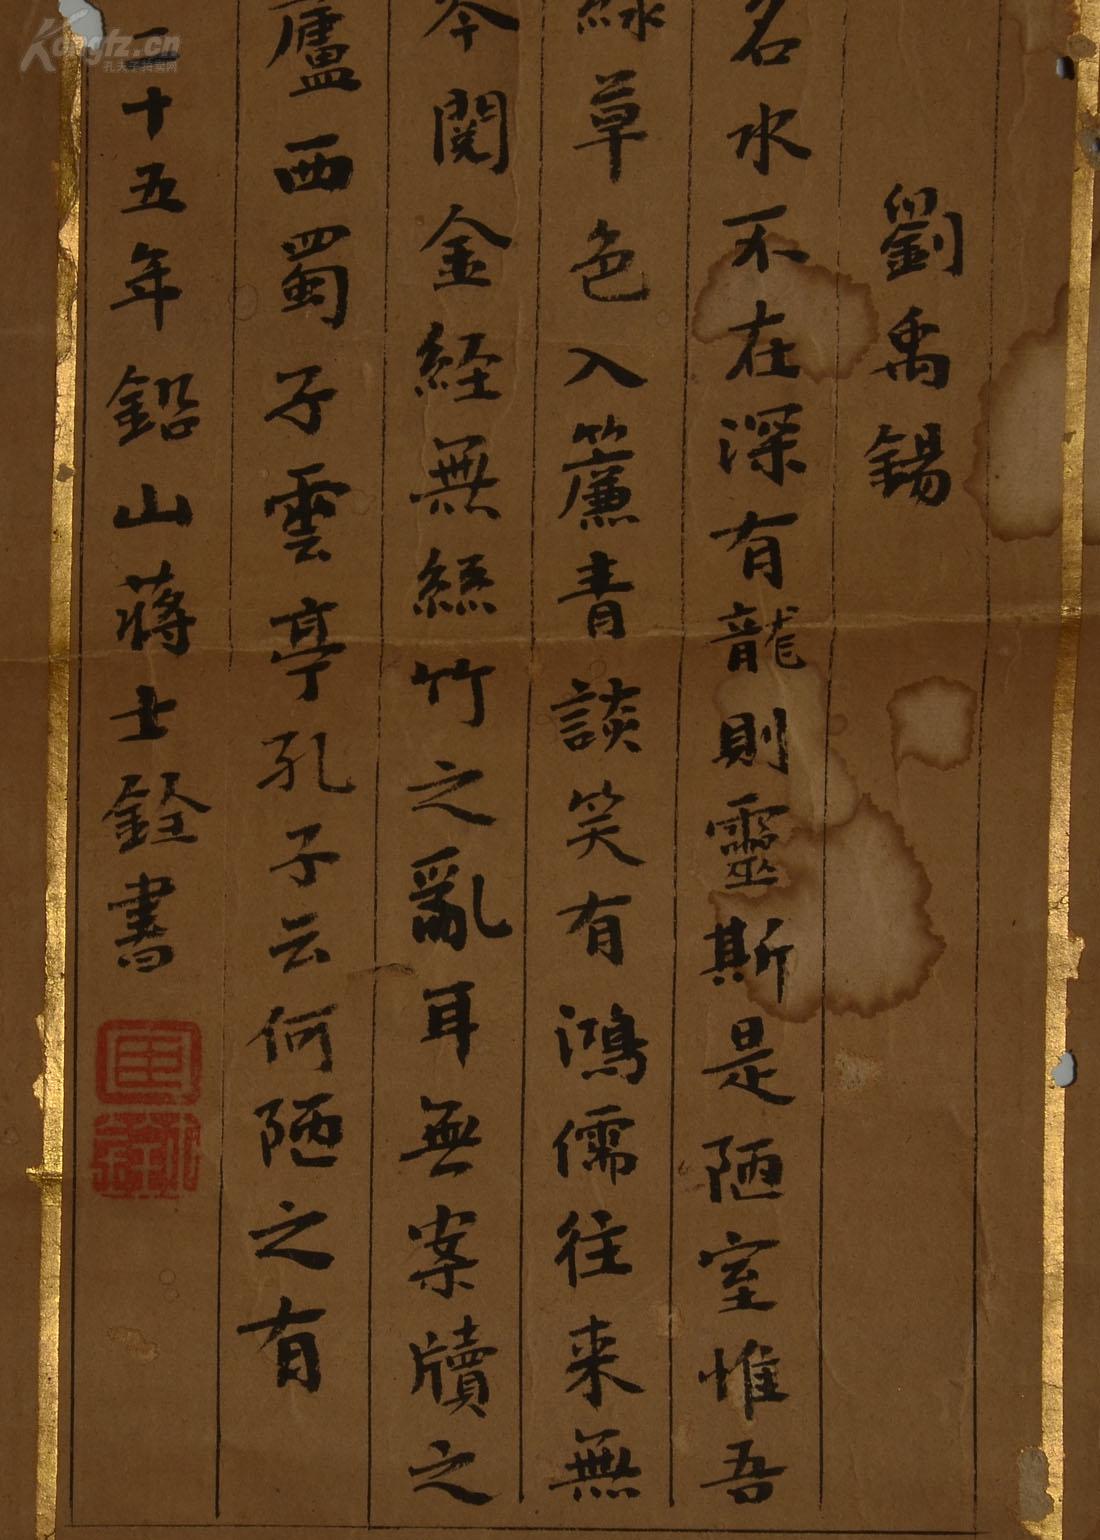 劉禹錫
名水不在深有龍則靈斯是陋室惟吾
綠草色入簾青談笑有鴻儒往來無
閱金經無絲竹之亂耳無案牘之
廬西蜀子雲亭孔子云何陋之有
二十五年鉛山蔣士銓書
Kongfz.cn
孔夫子拍卖网